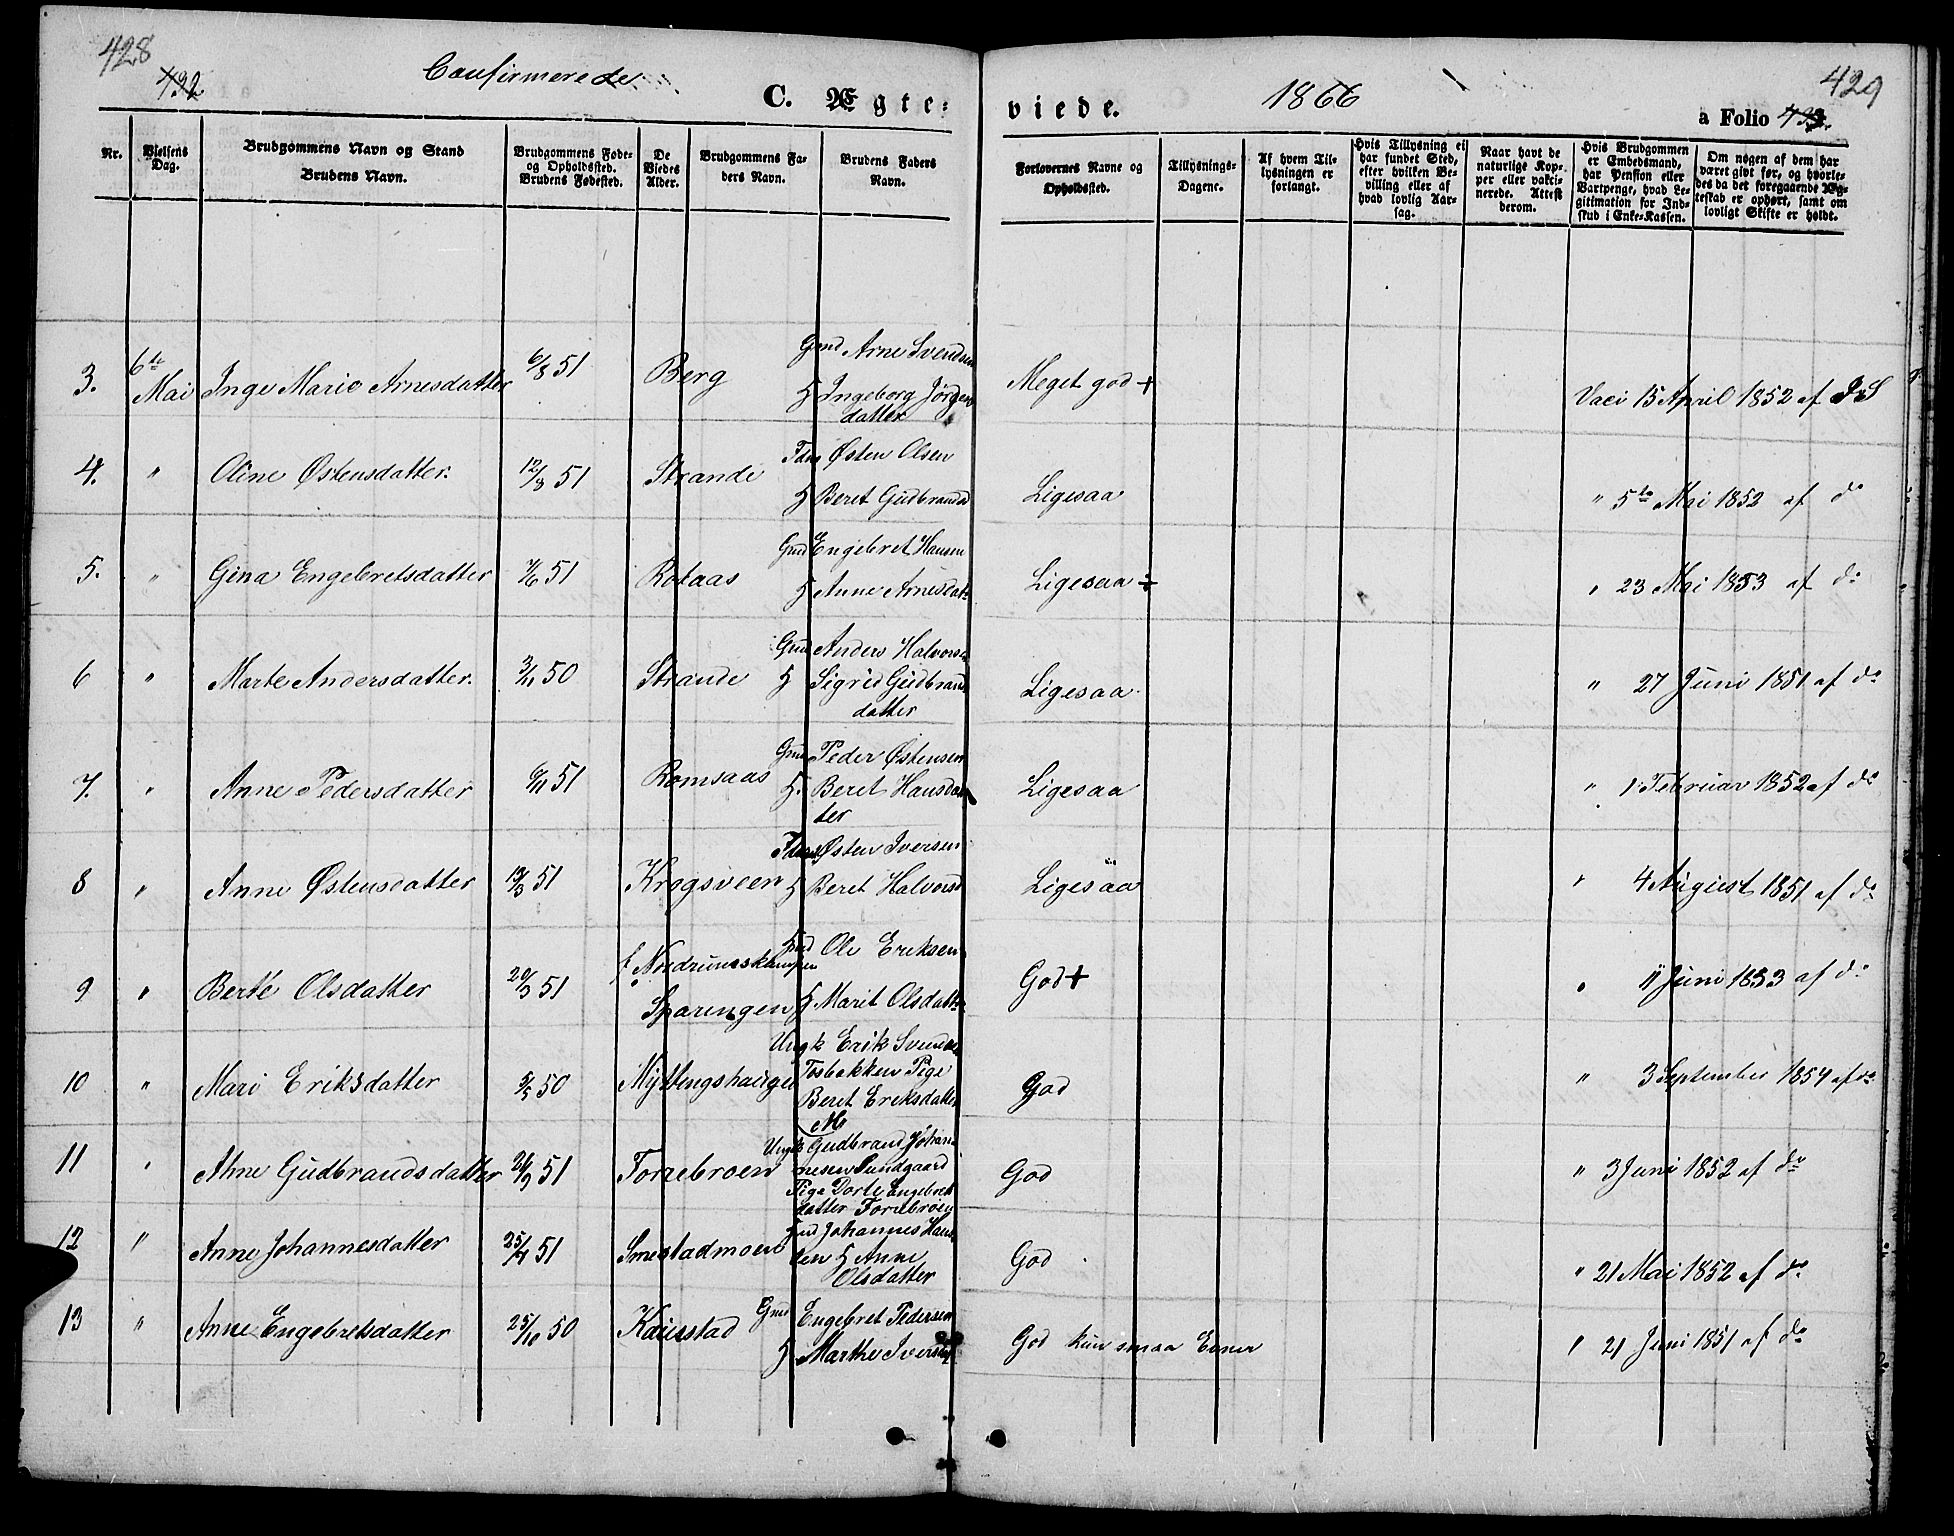 428
432.
Confirmerede
C. Ægte=
viede.
1866
429
a Folio
Nr.
Vielsens Dag.
Brudgommens Navn og Stand
Brudens Navn.
Brudgommens Føde- og Opholdssted.
Brudens Fødested.
De Viedes Alder.
Brudgommens Faders Navn.
Brudens Faders Navn.
Forlovernes Navne og Opholdssted.
Tillysnings-Dagene.
Af hvem Tillysningen er forlangt.
Hvis Tillysning ei har fundet Sted, efter hvilken Bevilling eller af hvad lovlig Aarsag.
Naar havt de naturlige Kopper eller vakcinerede. Attest derom.
Hvis Brudgommen er Embedsmand, har Pension eller Vartpenge, hvad Legitimation for Indskud i Enke-Kassen.
Om nogen af dem har været gift før, og hvorledes da det foregaaende Ægteskab er ophørt, samt om lovligt Skifte er holdt.
3. 6te Mai Inge Marie Arnesdatter 6/8 51 Berg Gmd Arne Svendsen
H Ingeborg Jørgens
datter
Meget god + Vaci 15 April 1852 af
4. " Oline Østensdatter. 12/8 51 Strande Østen Olsen
H Beret Gudbrandsd
Ligesaa " 5te Mai 1852 af do
5. " Gina Engebretsdatter 51 Rolaas Gmd Engebret Hansen
H Anne Arnesdatr
Ligesaa + " 23 Mai 1853 af do
6 " Marte Andersdatter. 3/11 50 Strande Gmd Anders Halvorsen
H Sigrid Gudbrands
datter
Ligesaa " 27 Juni 1851 af do
7. " Anne Pedersdatter 51 Romsaas Gmd Peder Østensen
H. Beret Hansdat
ter
Ligesaa " 1 Februar 1852 af do
8 " Anne Østensdatter 13/3 51 Krogsveen Østen Iversen
H Beret Halvorsd
Ligesaa " 4 August 1851 af do
9 " Berte Olsdatter 20/3 51 f. Nordrumskampen
Sparengen
Gmd Ole Eriksen
H Marit Olsdatter
God + " 11 Juni 1853 af do
10 " Mari Eriksdatter 50 Myttingshaugen Ungk Erik Svendsen
Tosbakken Pige
Beret Eriksdatter
God " 3 September 1854 af do
11 " Anne Gudbrandsdatter 26/9 51 Forrebroen Ungk Gudbrand Johan
nesen Sundgaard
Pige Dorte Engebrets
datter Forrebroen
God " 3 Juni 1852 af do
12 " Anne Johannesdatter 51 Smestadmoen Gmd Johannes Han
sen H Anne
Olsdatter
God " 21 Mai 1852 af do
13 " Anne Engebretsdatter 25/10 50 Kausstad Gmd Engebret Pedersen
H Marthe Iversd
God kun smaa Evner " 21 Juni 1851 af do